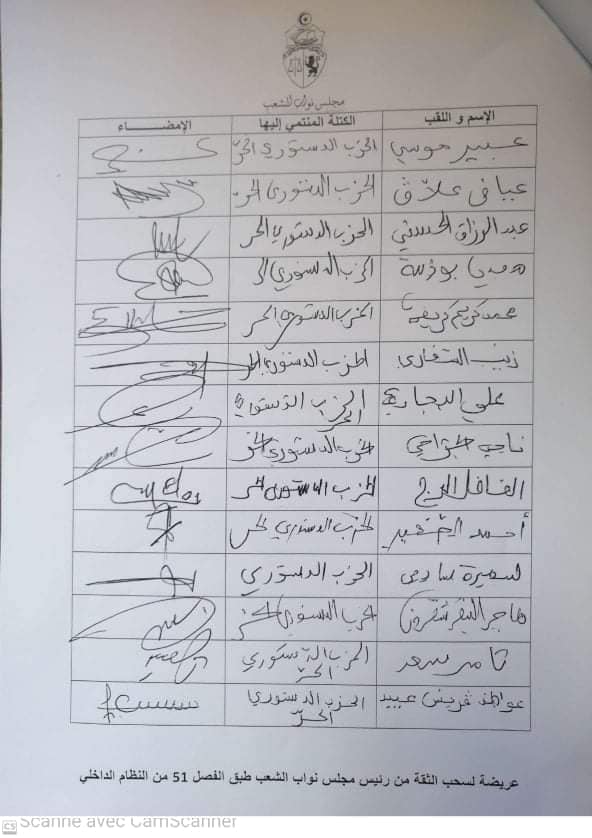 مجلس نواب الشعب
الإسم و اللقب الكتلة المنتمي إليها الإمضـــــاء
عبير موسي الحزب الدستوري الحرّ
علاّق الحزب الدستوري الحر
عبد الرزاق الحسني الحزب الدستوري الحر
بوذينة الحزب الدستوري
محمد كريم كريفة الحزب الدستوري الحر
زينب السفاري الحزب الدستوري الحر
علي البجاوي الحزب الدستوري الحر
ناجي الجراحي الحزب الدستوري الحر
الفاضل الحزب الدستوري الحر
أحمد الصغير الحزب الدستوري الحر
سميرة سايحي الحزب الدستوري
هاجر النيفر شقرون الحزب الدستوري الحر
ثامر سعد الحزب الدستوري الحرّ
عواطف قريش عبيد الحزب الدستوري الحرّ
عريضة لسحب الثقة من رئيس مجلس نواب الشعب طبق الفصل 51 من النظام الداخلي
CS Scanné avec CamScanner